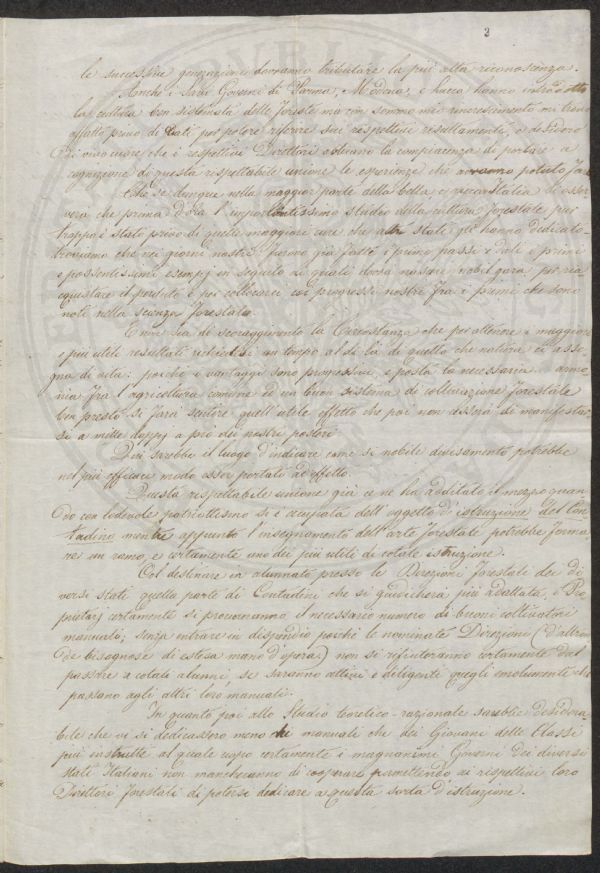 3
le successive generazioni dovranno tributare la più alta riconoscenza.
Anche i Savi Governi di Parma, Modena, e Lucca hanno introdotto
la cultura ben sistemata delle foreste ma con sommo mio rincrescimento mi trovo
affatto privo di dati per poter riferire sui respettivi resultamenti, e desidero
di vivo cuore che i respettivi Direttori abbiano la compiacenza di portare a
cognizione di questa respettabile unione le esperienze che avranno potuto fare
Che se dunque nella maggior parte della bella e ricca Italia si osser
verà che prima d'ora l'importantissimo studio della cultura forestale pur
troppo è stato privo di quelle maggiori cure che altri stati gli hanno dedicato
troviamo che nei giorni nostri furono già fatti i primi passi e dati i primi
e possentissimi esempj in seguito ai quali dovrà nascere nobil gara per ria
cquistare il perduto e poi collocarci coi progressi nostri fra i primi che sono
noti nella scienza forestale.
E non sia di scoraggimento la Circostanza che per ottenere i maggiori
e più utili resultati richiedesi un tempo al di là di quello che natura ci asse
gna di vita; poichè i vantaggi sono progressivi, e posta la necessaria armo
nia fra l'agricoltura comune ed un buon sistema di coltivazione forestale
ben presto si farà sentire quell'utile effetto che poi non cesserà di manifestar
si a mille doppj a prò dei nostri posteri
Qui sarebbe il luogo d'indicare come si nobile divisamento potrebbe
nel più efficace modo esser portato ad effetto.
Questa respettabile unione già ce ne ha additato il mezzo quan
do con lodevole patriottesimo si è occupata dell'oggetto d'istruzione del Con
tadino mentre appunto l'insegnamento dell'arte forestale potrebbe forma
re un ramo, e certamente uno dei più utili di cotale istruzione.
Col destinare in alunnato presso le Direzioni forestali dei di
versi stati quella parte di Contadini che si giudicherà più adattata, i Pro
prietarj certamente si procureranno il necessario numero di buoni coltivatori
manuali; senza entrare in dispendio poichè le nominate Direzioni (d'altron
de bisognose di estesa mano d'opera) non si rifiuteranno certamente dal
passare a cotali alunni, se saranno attivi e diligenti quegli emolumenti che
passano agli altri loro manuali.
In quanto poi allo Studio teoretico-razionale sarebbe desidera
bile che vi si dedicassero meno dei manuali che dei Giovani delle Classi
più instrutte al quale uopo certamente i magnanimi Governi dei diversi
stati Italiani non mancheranno di cooperare permettendo ai respettivi loro
Direttori forestali di potersi dedicare a questa sorta d'istruzione.